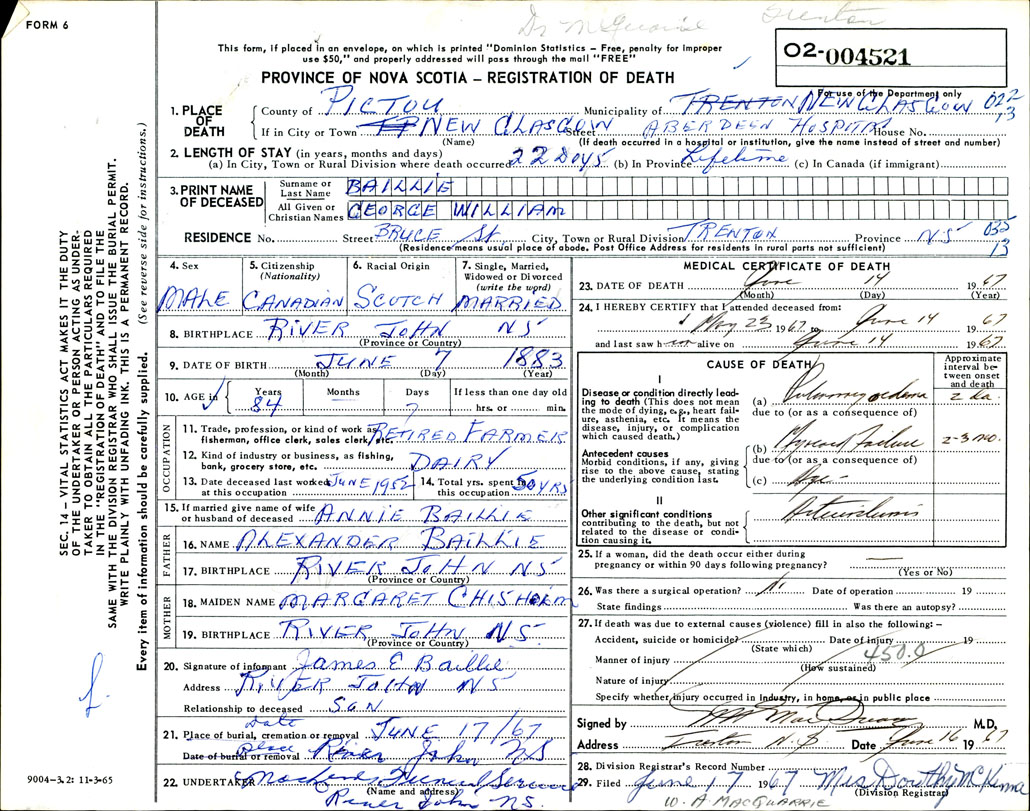 FORM 6
Dr McQuarrie Trenton
This form, if placed in an envelope, on which is printed "Dominion Statistics – Free, penalty for improper
use $50," and properly addressed will pass through the mail "FREE"
02-004521
For use of the Department only
PROVINCE OF NOVA SCOTIA – REGISTRATION OF DEATH
1. PLACE OF DEATH
County of PICTOU Municipality of TRENTON NEW GLASGOW 022 13
If in City or Town NEW GLASGOW Street ABERDEEN HOSPITAL House No.
(Name) (If death occurred in a hospital or institution, give the name instead of street and number)
2. LENGTH OF STAY (in years, months and days)
(a) In City, Town or Rural Division where death occurred 22 DAYS (b) In Province Lifetime (c) In Canada (if immigrant)
3. PRINT NAME OF DECEASED
Surname or Last Name BAILLIE
All Given or Christian Names GEORGE WILLIAM
RESIDENCE No. Street BRUCE St City, Town or Rural Division TRENTON Province NS 035 13
(Residence means usual place of abode. Post Office Address for residents in rural parts not sufficient)
4. Sex MALE
5. Citizenship (Nationality) CANADIAN
6. Racial Origin SCOTCH
7. Single, Married, Widowed or Divorced (write the word) MARRIED
8. BIRTHPLACE RIVER JOHN NS
(Province or Country)
9. DATE OF BIRTH JUNE 7 1883
(Month) (Day) (Year)
10. AGE in Years 84 Months Days 7 If less than one day old hrs. or min.
OCCUPATION
11. Trade, profession, or kind of work as fisherman, office clerk, sales clerk, etc. RETIRED FARMER
12. Kind of industry or business, as fishing, bank, grocery store, etc. DAIRY
13. Date deceased last worked at this occupation JUNE 1952
14. Total yrs. spent in this occupation 50 YRS
15. If married give name of wife or husband of deceased ANNIE BAILLIE
FATHER
16. NAME ALEXANDER BAILLIE
17. BIRTHPLACE RIVER JOHN NS
(Province or Country)
MOTHER
18. MAIDEN NAME MARGARET CHISHOLM
19. BIRTHPLACE RIVER JOHN NS.
(Province or Country)
20. Signature of informant James E Baillie
Address RIVER JOHN NS
Relationship to deceased SON
Date
21. Place of burial, cremation or removal JUNE 17/67
place
Date of burial or removal River John NS
22. UNDERTAKER Funeral Service
(Name and address)
River John NS.
MEDICAL CERTIFICATE OF DEATH
23. DATE OF DEATH June 14 1967
(Month) (Day) (Year)
24. I HEREBY CERTIFY that I attended deceased from:
May 23 1967 to June 14 1967
and last saw h alive on June 14 1967
CAUSE OF DEATH
Approximate interval between onset and death
I
Disease or condition directly leading to death (This does not mean the mode of dying, e.g., heart failure, asthenia, etc. It means the disease, injury, or complication which caused death.)
(a) Pulmonary oedema 2 da.
due to (or as a consequence of)
Antecedent causes
Morbid conditions, if any, giving rise to the above cause, stating the underlying condition last.
(b) Myocard Failure 2-3 mo.
due to (or as a consequence of)
(c) Age
II
Other significant conditions
contributing to the death, but not related to the disease or condition causing it.
25. If a woman, did the death occur either during
pregnancy or within 90 days following pregnancy?
(Yes or No)
26. Was there a surgical operation? No Date of operation 19
State findings Was there an autopsy?
27. If death was due to external causes (violence) fill in also the following: –
Accident, suicide or homicide? Date of injury 19
(State which) 450.0
Manner of injury
(How sustained)
Nature of injury
Specify whether injury occurred in industry, in home, or in public place
Signed by M.D.
Address Trenton N.S Date June 16 1967
28. Division Registrar's Record Number
29. Filed June 17 1967 Mrs Dorothy McKenna
(Division Registrar)
W. A MACQUARRIE
SEC. 14 – VITAL STATISTICS ACT MAKES IT THE DUTY
OF THE UNDERTAKER OR PERSON ACTING AS UNDER-
TAKER TO OBTAIN ALL THE PARTICULARS REQUIRED
IN THE "REGISTRATION OF DEATH" AND TO FILE THE
SAME WITH THE DIVISION REGISTRAR WHO SHALL ISSUE THE BURIAL PERMIT.
WRITE PLAINLY WITH UNFADING INK. THIS IS A PERMANENT RECORD.
Every item of information should be carefully supplied. (See reverse side for instructions.)
9004-3.2: 11-3-65